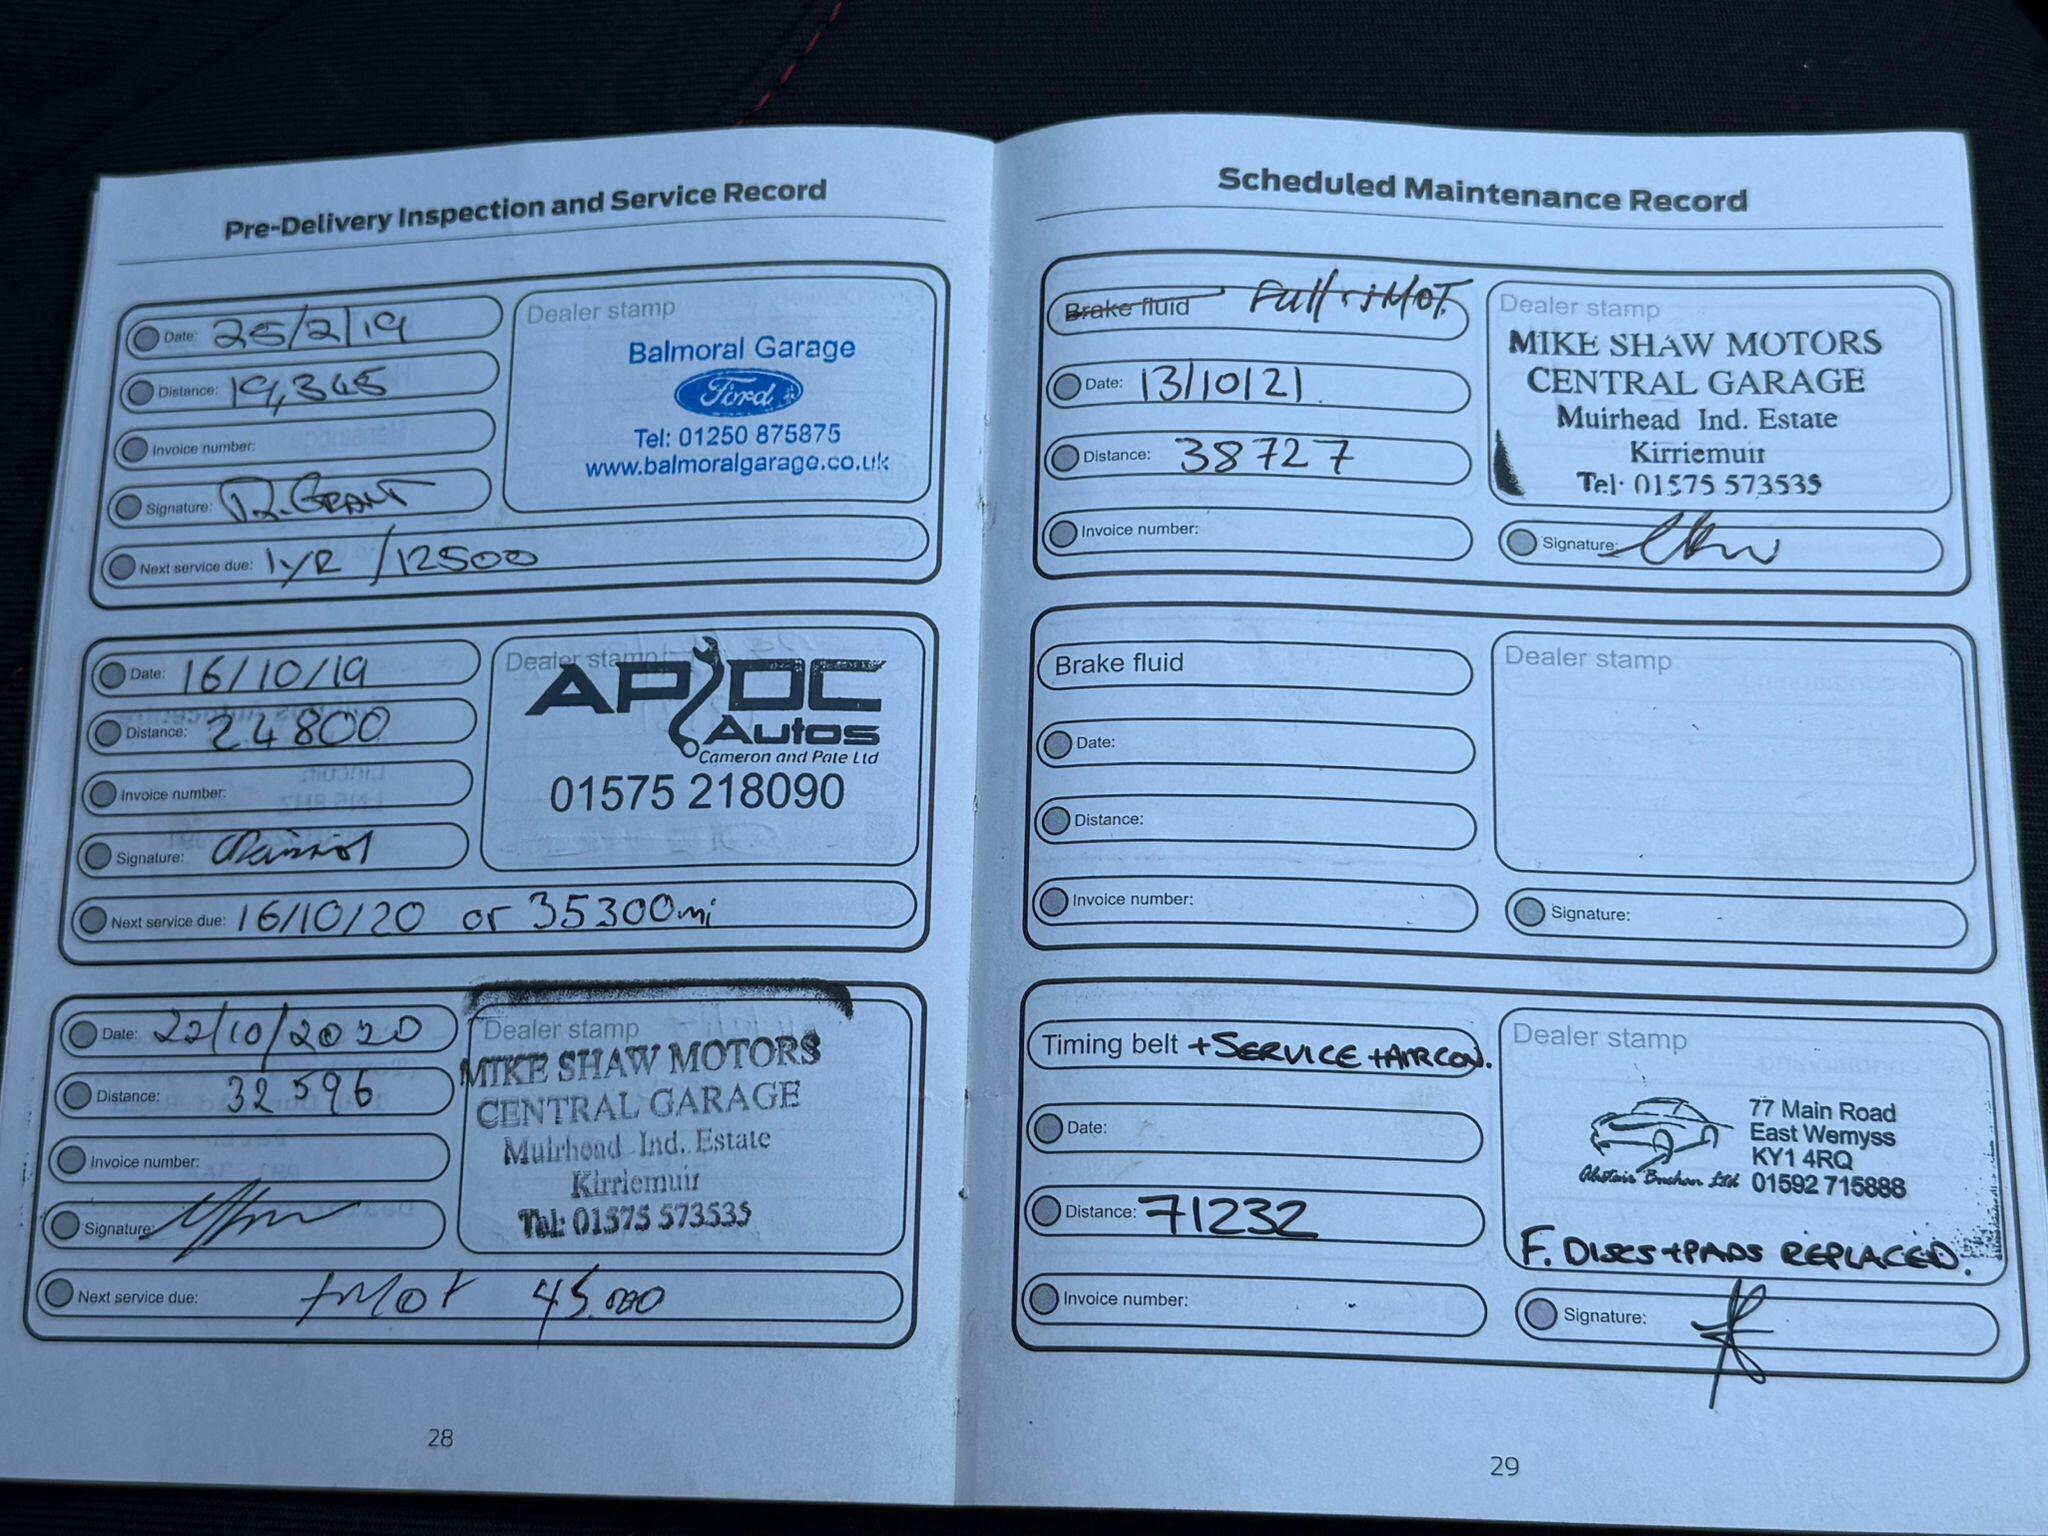 Pre-Delivery Inspection and Service Record
Date: 25/2/19
Distance: 19,345
Invoice number:
Signature: D. GRANT
Next service due: 1 YR / 12500
Dealer stamp
Balmoral Garage
Ford
Tel: 01250 875875
www.balmoralgarage.co.uk
Date: 16/10/19
Distance: 24800
Invoice number:
Signature:
Next service due: 16/10/20 or 35300mi
Dealer stamp
AP DC
Autos
Cameron and Pate Ltd
01575 218090
Date: 22/10/2020
Distance: 32596
Invoice number:
Signature:
Next service due: +MOT 45.000
Dealer stamp
MIKE SHAW MOTORS
CENTRAL GARAGE
Muirhead Ind. Estate
Kirriemuir
Tel: 01575 573535
28
Scheduled Maintenance Record
Brake fluid Full + MOT.
Date: 13/10/21
Distance: 38727
Invoice number:
Dealer stamp
MIKE SHAW MOTORS
CENTRAL GARAGE
Muirhead Ind. Estate
Kirriemuir
Tel: 01575 573535
Signature:
Brake fluid
Date:
Distance:
Invoice number:
Dealer stamp
Signature:
Timing belt + SERVICE + AIRCON.
Date:
Distance: 71232
Invoice number:
Dealer stamp
77 Main Road
East Wemyss
KY1 4RQ
Alastair Buchan Ltd 01592 715888
F. DISCS + PADS REPLACED.
Signature:
29